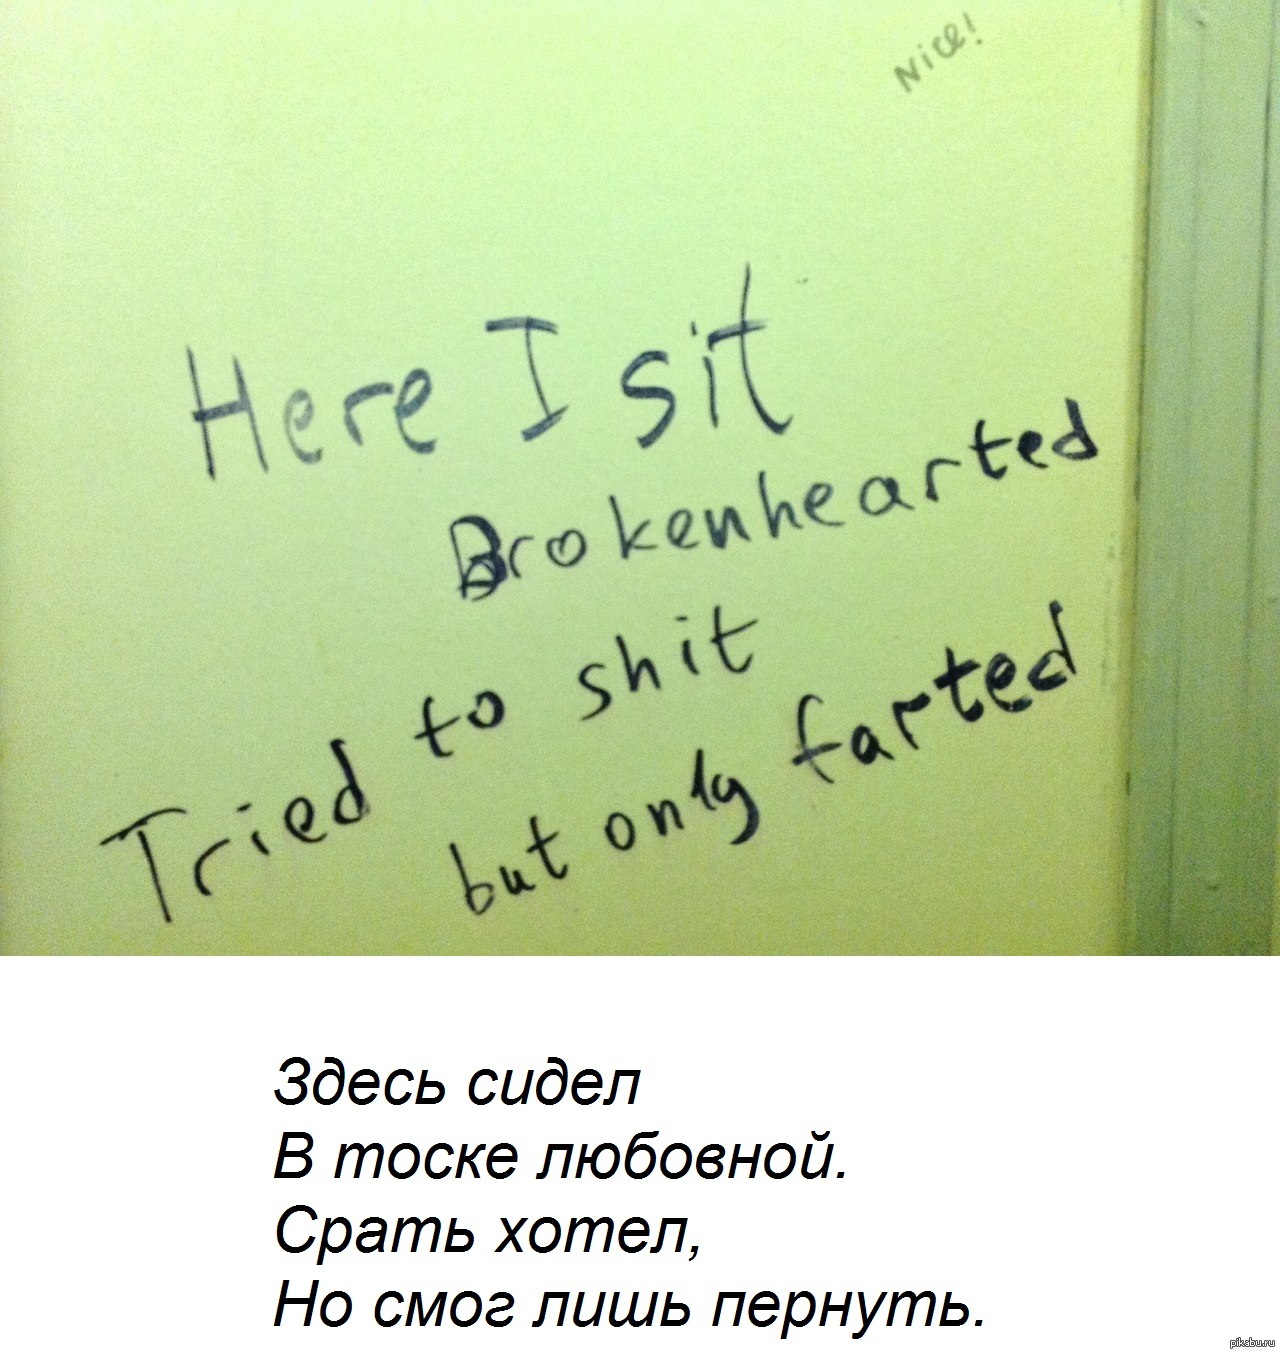 Nice!
Here I sit
Brokenhearted
Tried to shit
but only farted
Здесь сидел
В тоске любовной.
Срать хотел,
Но смог лишь пернуть.
pikabu.ru